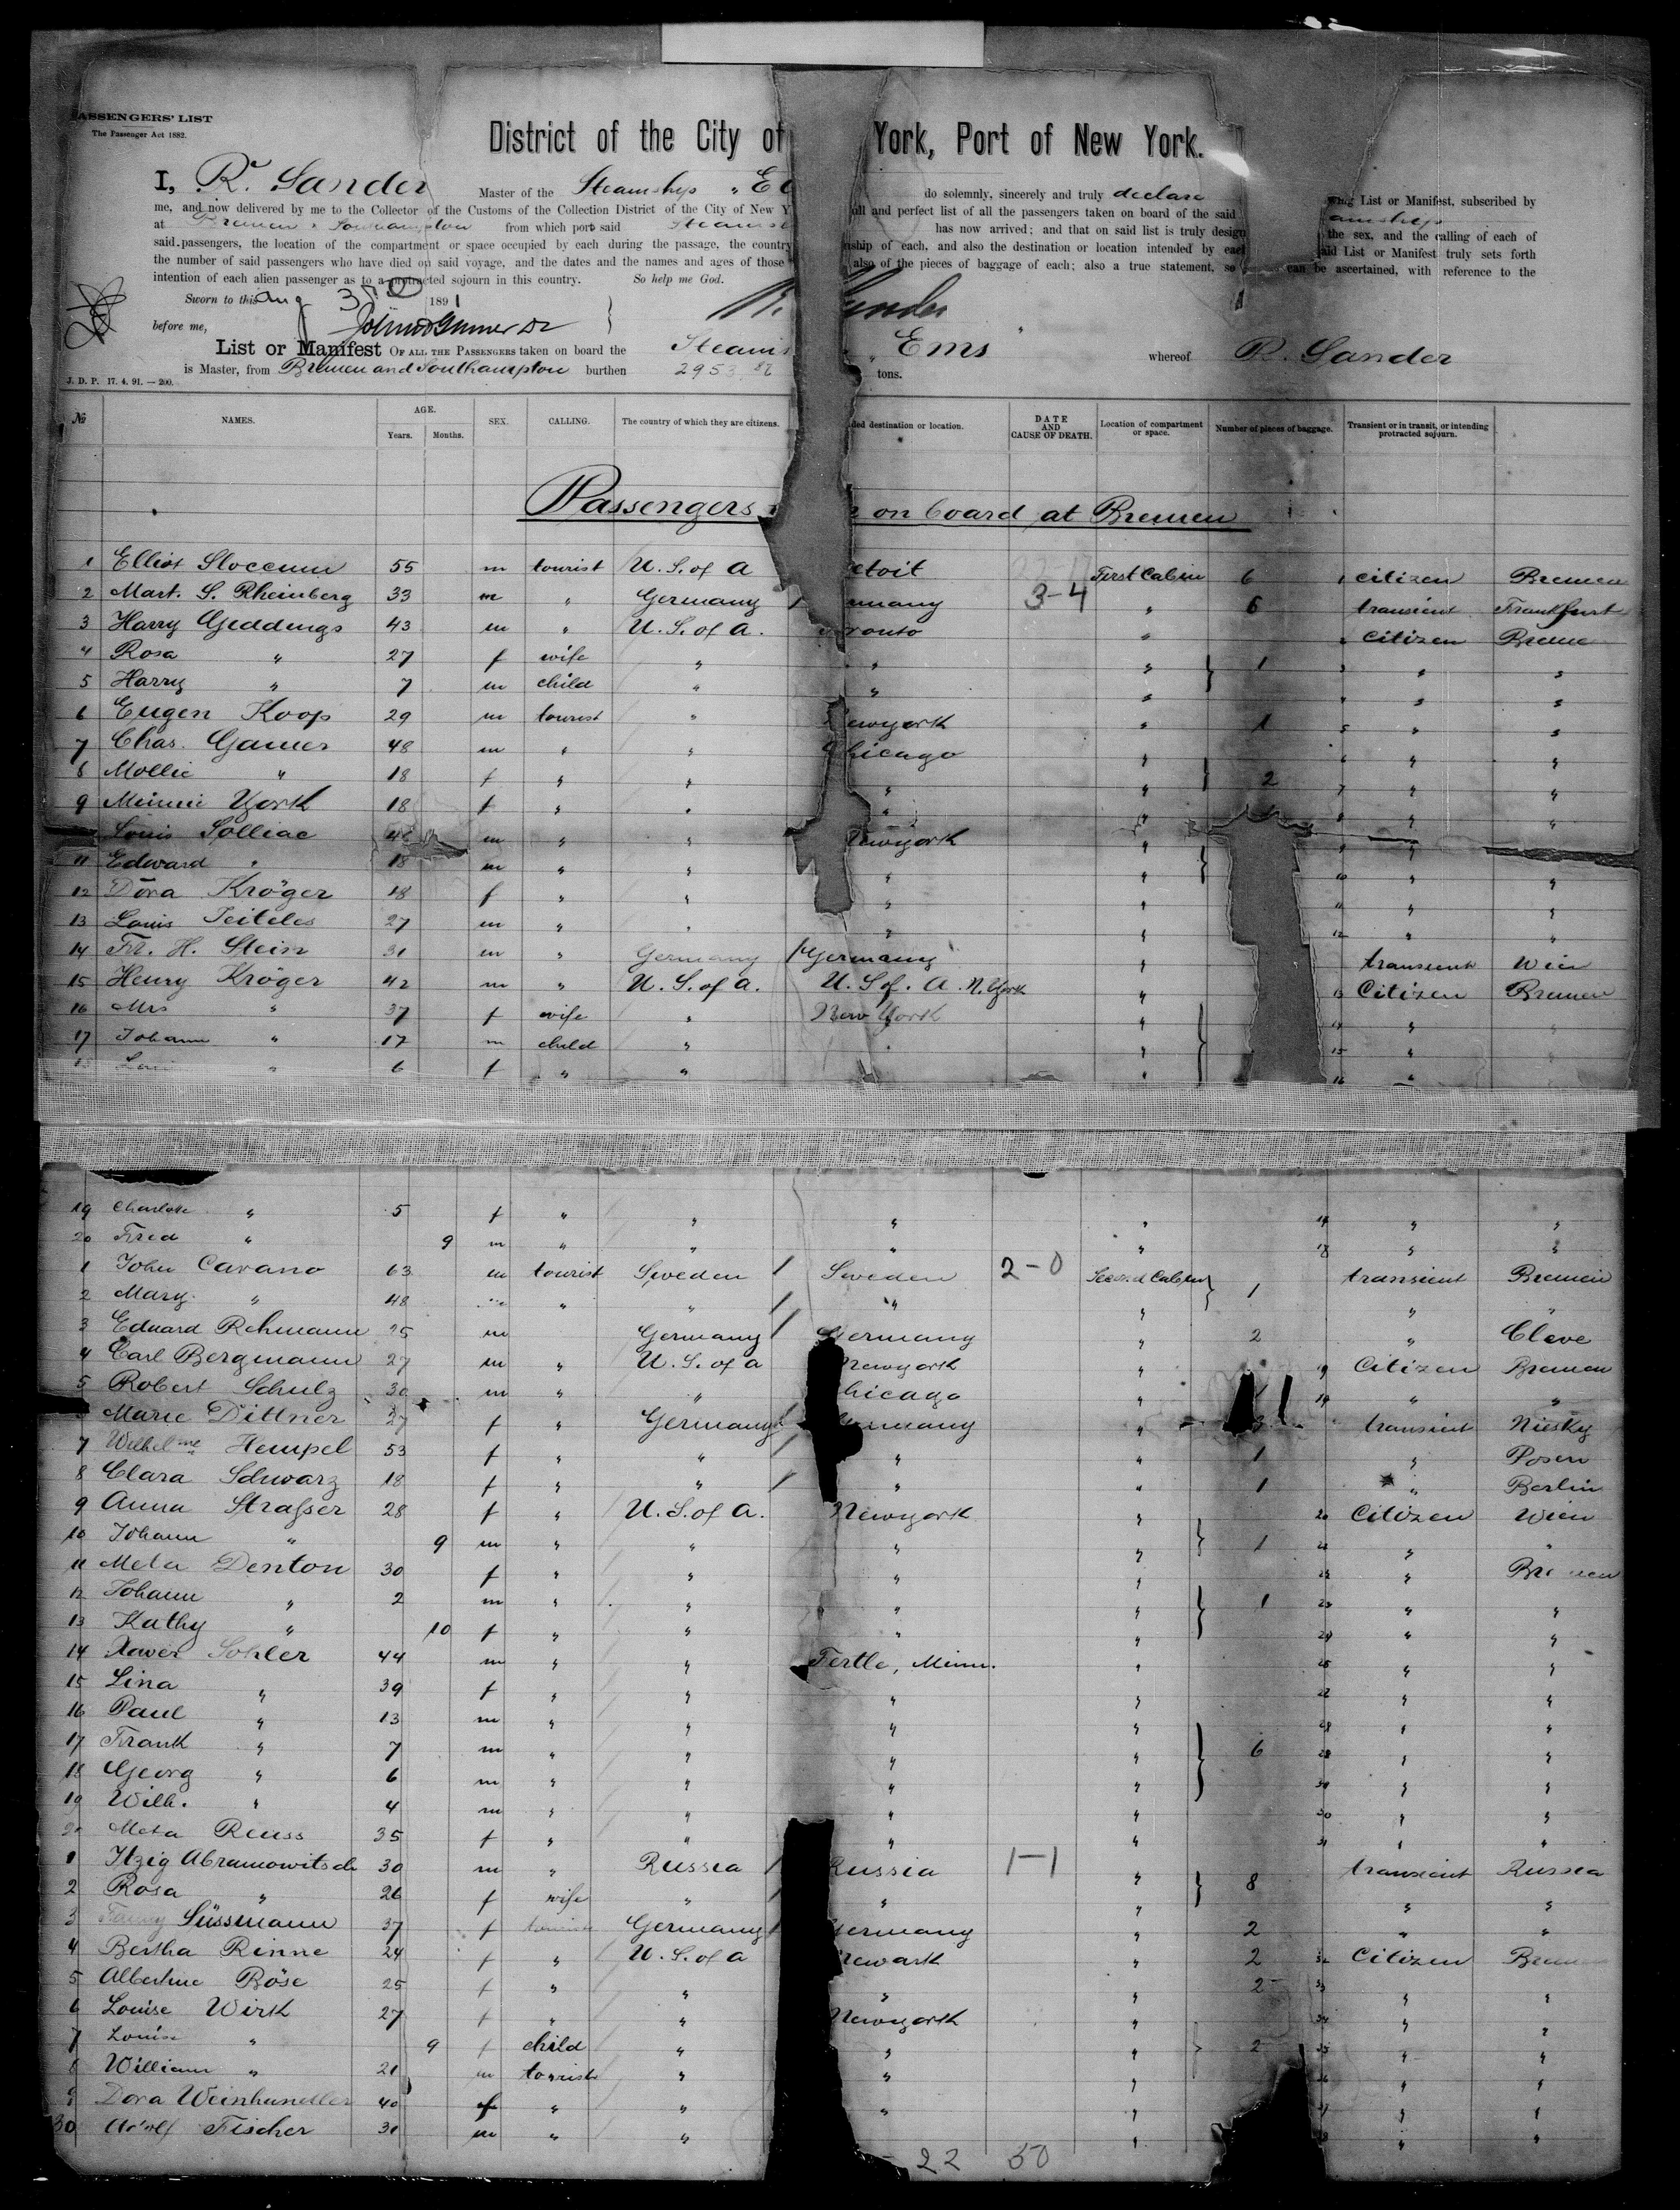 PASSENGERS' LIST
The Passenger Act 1882.
District of the City of York, Port of New York.
I, R. Sander Master of the Steamship " E do solemnly, sincerely and truly declare List or Manifest, subscribed by
me, and now delivered by me to the Collector of the Customs of the Collection District of the City of New Y all and perfect list of all the passengers taken on board of the said
at Bremen & Southampton from which port said Steams has now arrived; and that on said list is truly design the sex, and the calling of each of
said passengers, the location of the compartment or space occupied by each during the passage, the country ship of each, and also the destination or location intended by each said List or Manifest truly sets forth
the number of said passengers who have died on said voyage, and the dates and the names and ages of those also of the pieces of baggage of each; also a true statement, so can be ascertained, with reference to the
intention of each alien passenger as to a protracted sojourn in this country. So help me God.
Sworn to this Aug 3 1891
before me,
R. Sander
List or Manifest OF ALL THE PASSENGERS taken on board the Steams " Ems whereof R. Sander
is Master, from Bremen and Southampton burthen 2953 tons.
J. D. P. 17. 4. 91. — 200.
№ NAMES. AGE. Years. Months. SEX. CALLING. The country of which they are citizens. ded destination or location. DATE AND CAUSE OF DEATH. Location of compartment or space. Number of pieces of baggage. Transient or in transit, or intending protracted sojourn.
Passengers on board at Bremen
1 Elliot Sloccum 55 m tourist U. S. of A etoit First Cabin 6 1 citizen Bremen
2 Mart. S. Rheinberg 33 m " Germany many 3-4 " 6 transient Frankfurt
3 Harry Geddings 43 m " U. S. of A. ronto " 2 Citizen Breme
4 Rosa " 27 f wife " " " 1 3 " "
5 Harry " 7 m child " " " 4 " "
6 Eugen Koop 29 m tourist " ewyork " 1 5 " "
7 Chas. Gamer 48 m " " hicago " 6 " "
8 Mollie " 18 f " " " " 2 7 " "
9 Minnie York 18 f " " " " 8 " "
Louis Solliac 48 m " " Newyork " 9 "
11 Edward " 18 m " " " " 10 " "
12 Dora Kröger 18 f " " " " 11 " "
13 Louis Teiteles 27 m " " " " 12 " "
14 Fr. H. Stein 31 m " Germany Germany " transient Wien
15 Henry Kröger 42 m " U. S. of A. U. S. of. A. N. York " 13 Citizen Bremen
16 Mrs " 37 f wife " New York " 14 " "
17 Johann " 17 m child " " " 15 "
" 6 f " " " 16 "
19 Charlotte " 5 f " " " " 17 " "
20 Fred " 9 m " " " " 18 " "
1 John Cavano 63 m tourist Sweden Sweden 2-0 Second Cabin 1 transient Bremen
2 Mary " 48 " " " " " "
3 Eduard Rehmann 25 m Germany Germany " 2 " Cleve
4 Carl Bergmann 27 m " U. S. of A Newyork " Citizen Bremen
5 Robert Schulz 30 m " " hicago " 19 " "
Marie Dittner 27 f " Germany Germany " transient Niesky
7 Wilhelme Hempel 53 f " " " " 1 " Posen
8 Clara Schwarz 18 f " " " " 1 " Berlin
9 Anna Strasser 28 f " U. S. of A. Newyork " 20 Citizen Wien
10 Johann " 9 m " " " " 1 " "
11 Meta Denton 30 f " " " " " Bremen
12 Johann " 2 m " " " " 1 23 " "
13 Kathy " 10 f " " " " 24 " "
14 Xaver Sohler 44 m " " Fertle, Minn. " 25 " "
15 Lina " 39 f " " " " " "
16 Paul " 13 m " " " " 28 " "
17 Frank " 7 m " " " " 6 " "
18 Georg " 6 m " " " " " "
19 Wilh. " 4 m " " " " 30 " "
Meta Reuss 35 f " " " " 31 " "
1 Itzig Abramowitsch 30 m " Russia Russia 1-1 " 8 transient Russia
2 Rosa " 26 f wife " " " " "
3 Fanny Süssmann 37 f tourist Germany Germany 2 " "
4 Bertha Rinne 24 f " U. S. of A Newark " 2 32 Citizen Breme
5 Albertine Böse 25 f " " " " 2 33 " "
6 Louise Wirk 27 f " " Newyork " 34 " "
7 Louise " 9 f child " " " 2 35 " "
8 William " 21 m tourist " " " 36 " "
9 Dora Weinhandler 40 f " " " " 37 " "
30 Adolf Fischer 31 m " " " 38 " "
22 50